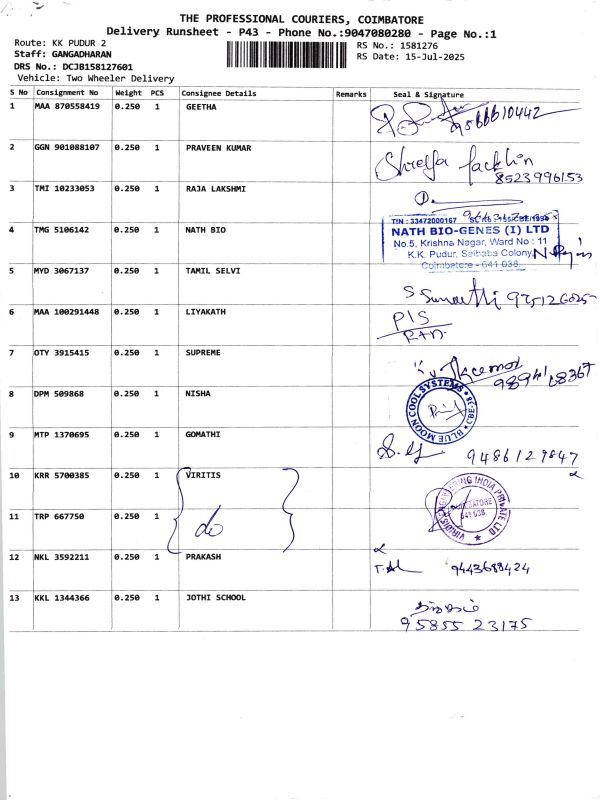 THE PROFESSIONAL COURIERS, COIMBATORE
Delivery Runsheet - P43 - Phone No.:9047080280 - Page No.:1
Route: KK PUDUR 2
RS No.: 1581276
Staff: GANGADHARAN
RS Date: 15-Jul-2025
DRS No.: DCJB158127601
Vehicle: Two Wheeler Delivery
S No Consignment No Weight PCS Consignee Details Remarks Seal & Signature
1 MAA 870558419 0.250 1 GEETHA
9566610442
2 GGN 901088107 0.250 1 PRAVEEN KUMAR
8523996153
3 TMI 10233053 0.250 1 RAJA LAKSHMI
4 TMG 5106142 0.250 1 NATH BIO
TIN : 33472000167
NATH BIO-GENES (I) LTD
No.5, Krishna Nagar, Ward No : 11
K.K. Pudur, Saibaba Colony,
Coimbatore - 641 038.
5 MYD 3067137 0.250 1 TAMIL SELVI
6 MAA 100291448 0.250 1 LIYAKATH
7 OTY 3915415 0.250 1 SUPREME
8 DPM 509868 0.250 1 NISHA
BLUE MOON COOL SYSTEMS
9 MTP 1370695 0.250 1 GOMATHI
9486129847
10 KRR 5700385 0.250 1 VIRITIS
11 TRP 667750 0.250 1
do
ENGINEERING INDIA PRIVATE LTD
COIMBATORE
641 038
12 NKL 3592211 0.250 1 PRAKASH
9443689424
13 KKL 1344366 0.250 1 JOTHI SCHOOL
95855 23175